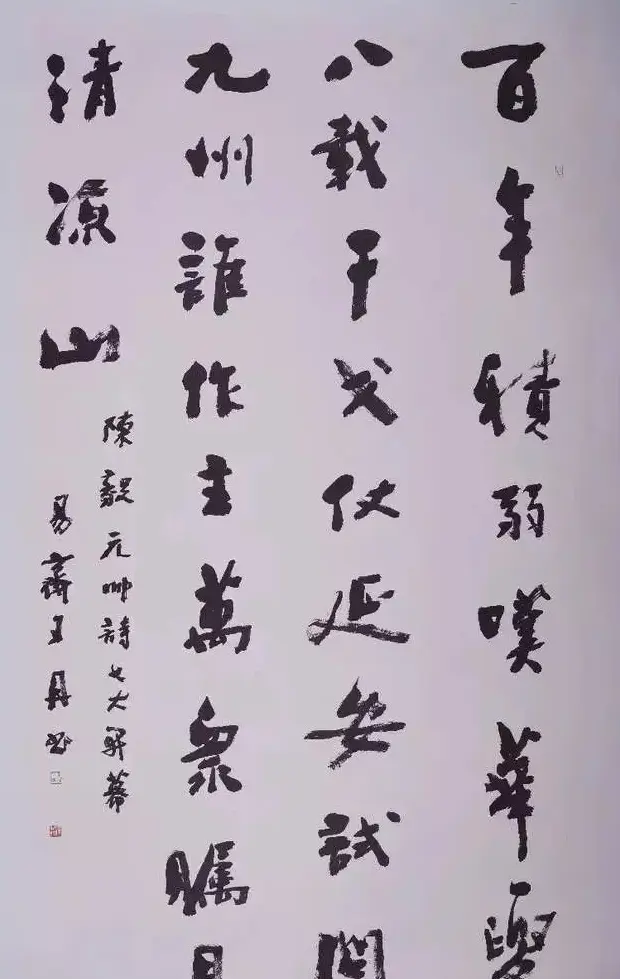 百年積弱嘆華
八載干戈仗延安試問
九州誰作主萬衆矚目
清凉山
陳毅元帥詩七大開幕
易齋王丹书